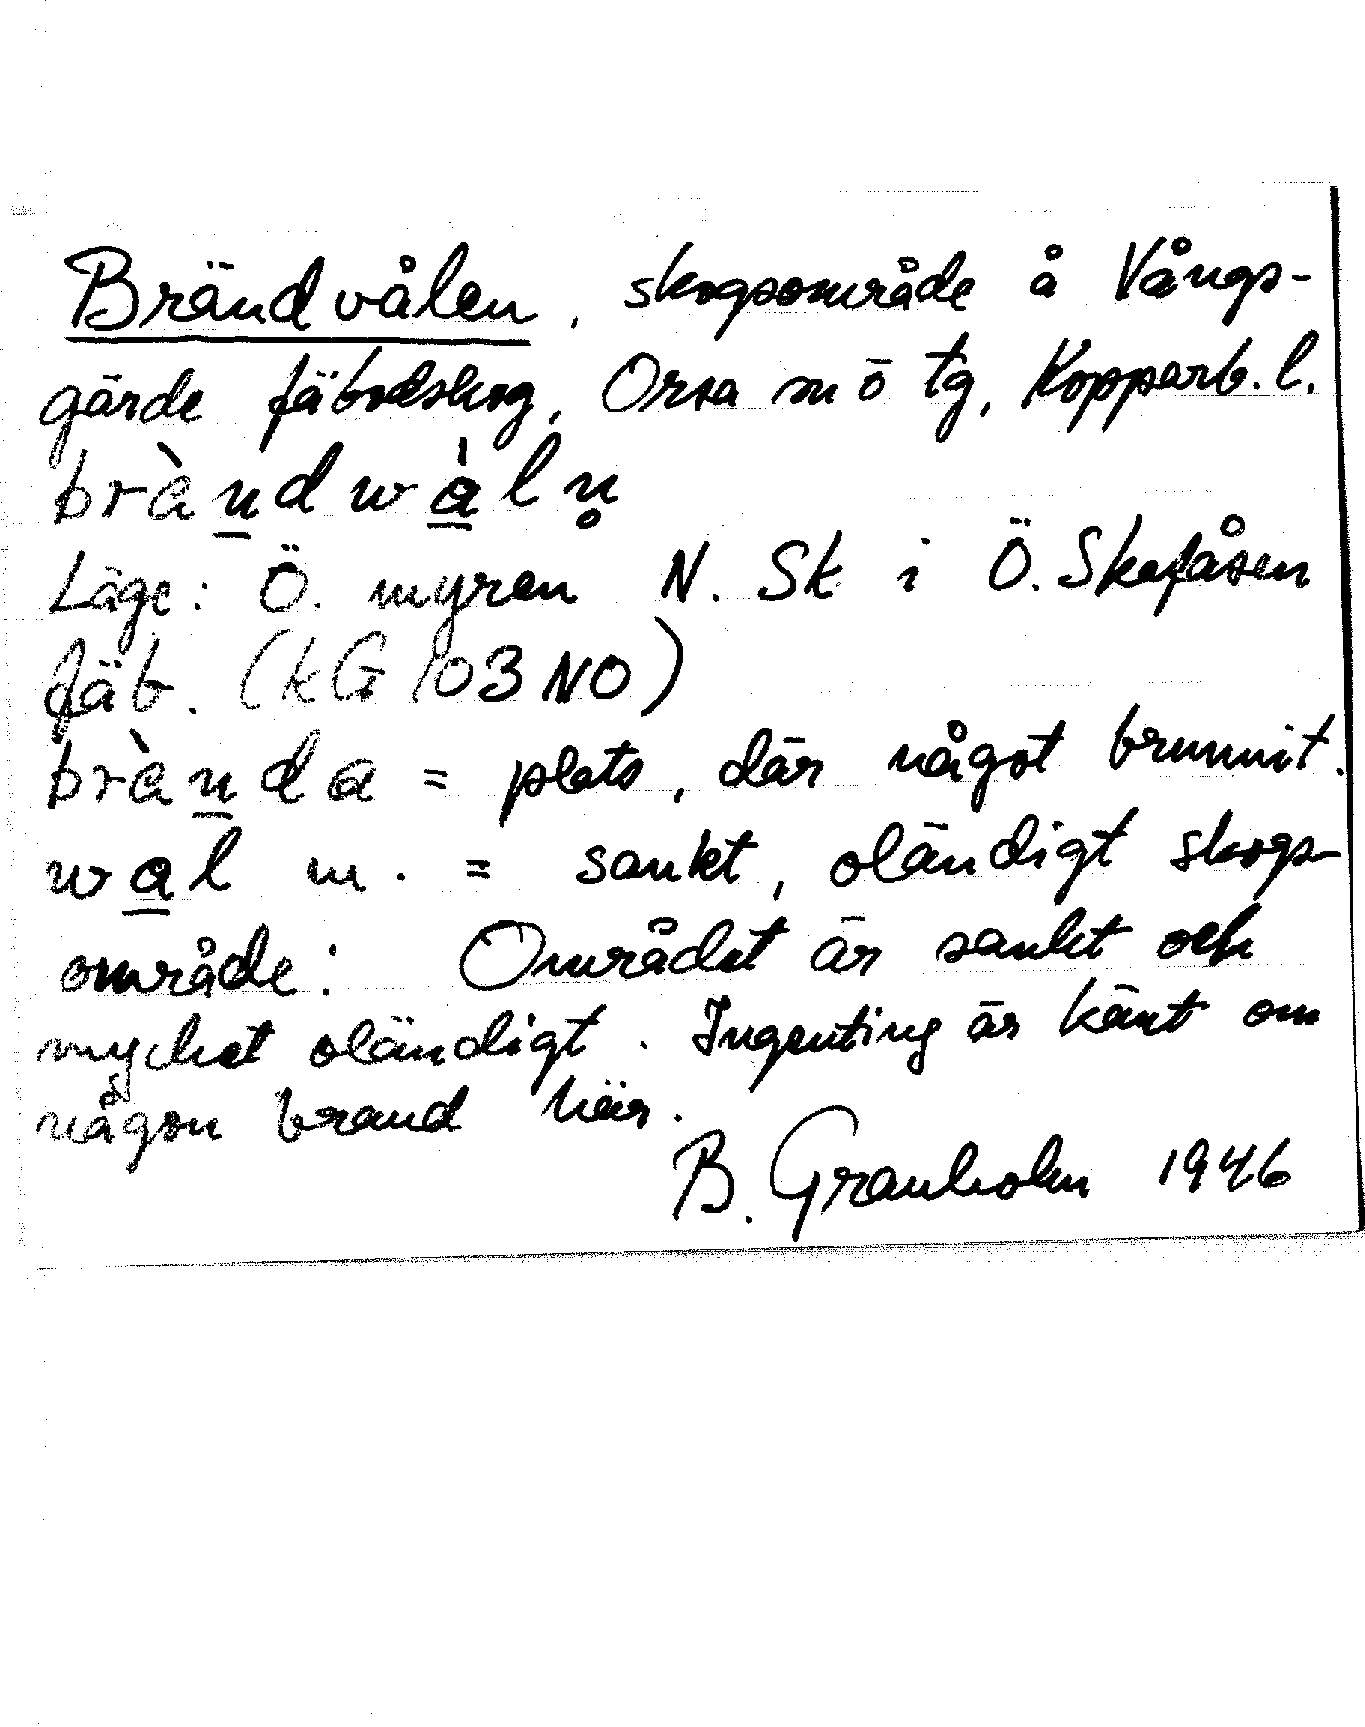 Brändvålen, skogsområde å Vångs-
gärde fäbodskog, Orsa sn ö tg, Kopparb. l.
brànd wàln̥
Läge: Ö. myren N. Sk i Ö. Skafåsen
fäb. (kG 103 NO)
brànda = plats, där något brunnit.
wal m. = sankt, oländigt skogs-
område: Området är sankt och
mycket oländigt. Ingenting är känt om
någon brand här.
B. Granholm 1946